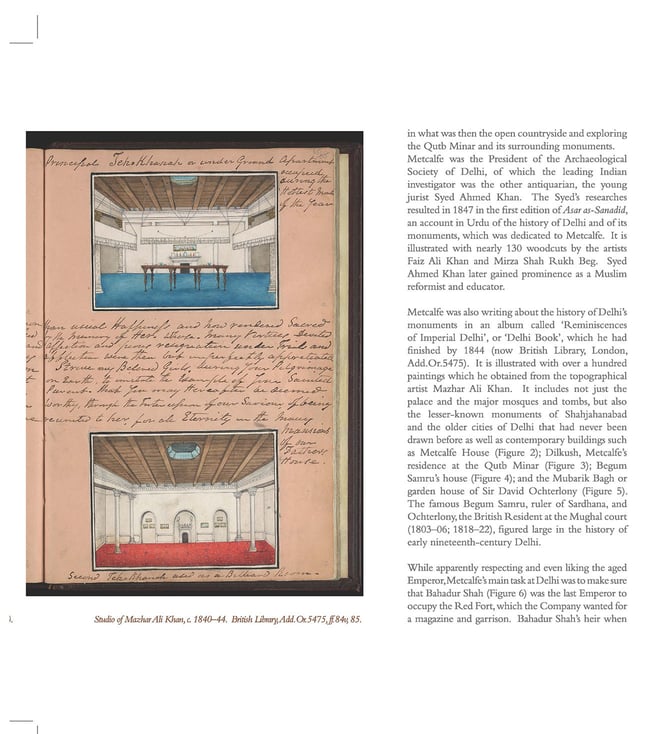 Principal TeheKhanah or under Ground Apartment
occupied
during the
Hottest Months
of the Year
than usual Happiness and now rendered Sacred
to the Memory of Her, whose Many Virtues Devoted
affection and
were then but imperfectly appreciated
Strive my Beloved Girls, during Your Pilgrimage
on Earth, to imitate the Example of Your Sainted
Parent. That You may Hereafter be deemed
worthy, through the Intercession of our Saviour of being
reunited to her, for all Eternity in the Many
Mansions
of our
Fathers
House.
Second TehKhanah used as a Billiard Room.
Studio of Mazhar Ali Khan, c. 1840–44. British Library, Add. Or. 5475, ff. 84v, 85.
in what was then the open countryside and exploring
the Qutb Minar and its surrounding monuments.
Metcalfe was the President of the Archaeological
Society of Delhi, of which the leading Indian
investigator was the other antiquarian, the young
jurist Syed Ahmed Khan. The Syed's researches
resulted in 1847 in the first edition of Asar as-Sanadid,
an account in Urdu of the history of Delhi and of its
monuments, which was dedicated to Metcalfe. It is
illustrated with nearly 130 woodcuts by the artists
Faiz Ali Khan and Mirza Shah Rukh Beg. Syed
Ahmed Khan later gained prominence as a Muslim
reformist and educator.
Metcalfe was also writing about the history of Delhi's
monuments in an album called 'Reminiscences
of Imperial Delhi', or 'Delhi Book', which he had
finished by 1844 (now British Library, London,
Add.Or.5475). It is illustrated with over a hundred
paintings which he obtained from the topographical
artist Mazhar Ali Khan. It includes not just the
palace and the major mosques and tombs, but also
the lesser-known monuments of Shahjahanabad
and the older cities of Delhi that had never been
drawn before as well as contemporary buildings such
as Metcalfe House (Figure 2); Dilkush, Metcalfe's
residence at the Qutb Minar (Figure 3); Begum
Samru's house (Figure 4); and the Mubarik Bagh or
garden house of Sir David Ochterlony (Figure 5).
The famous Begum Samru, ruler of Sardhana, and
Ochterlony, the British Resident at the Mughal court
(1803–06; 1818–22), figured large in the history of
early nineteenth-century Delhi.
While apparently respecting and even liking the aged
Emperor, Metcalfe's main task at Delhi was to make sure
that Bahadur Shah (Figure 6) was the last Emperor to
occupy the Red Fort, which the Company wanted for
a magazine and garrison. Bahadur Shah's heir when